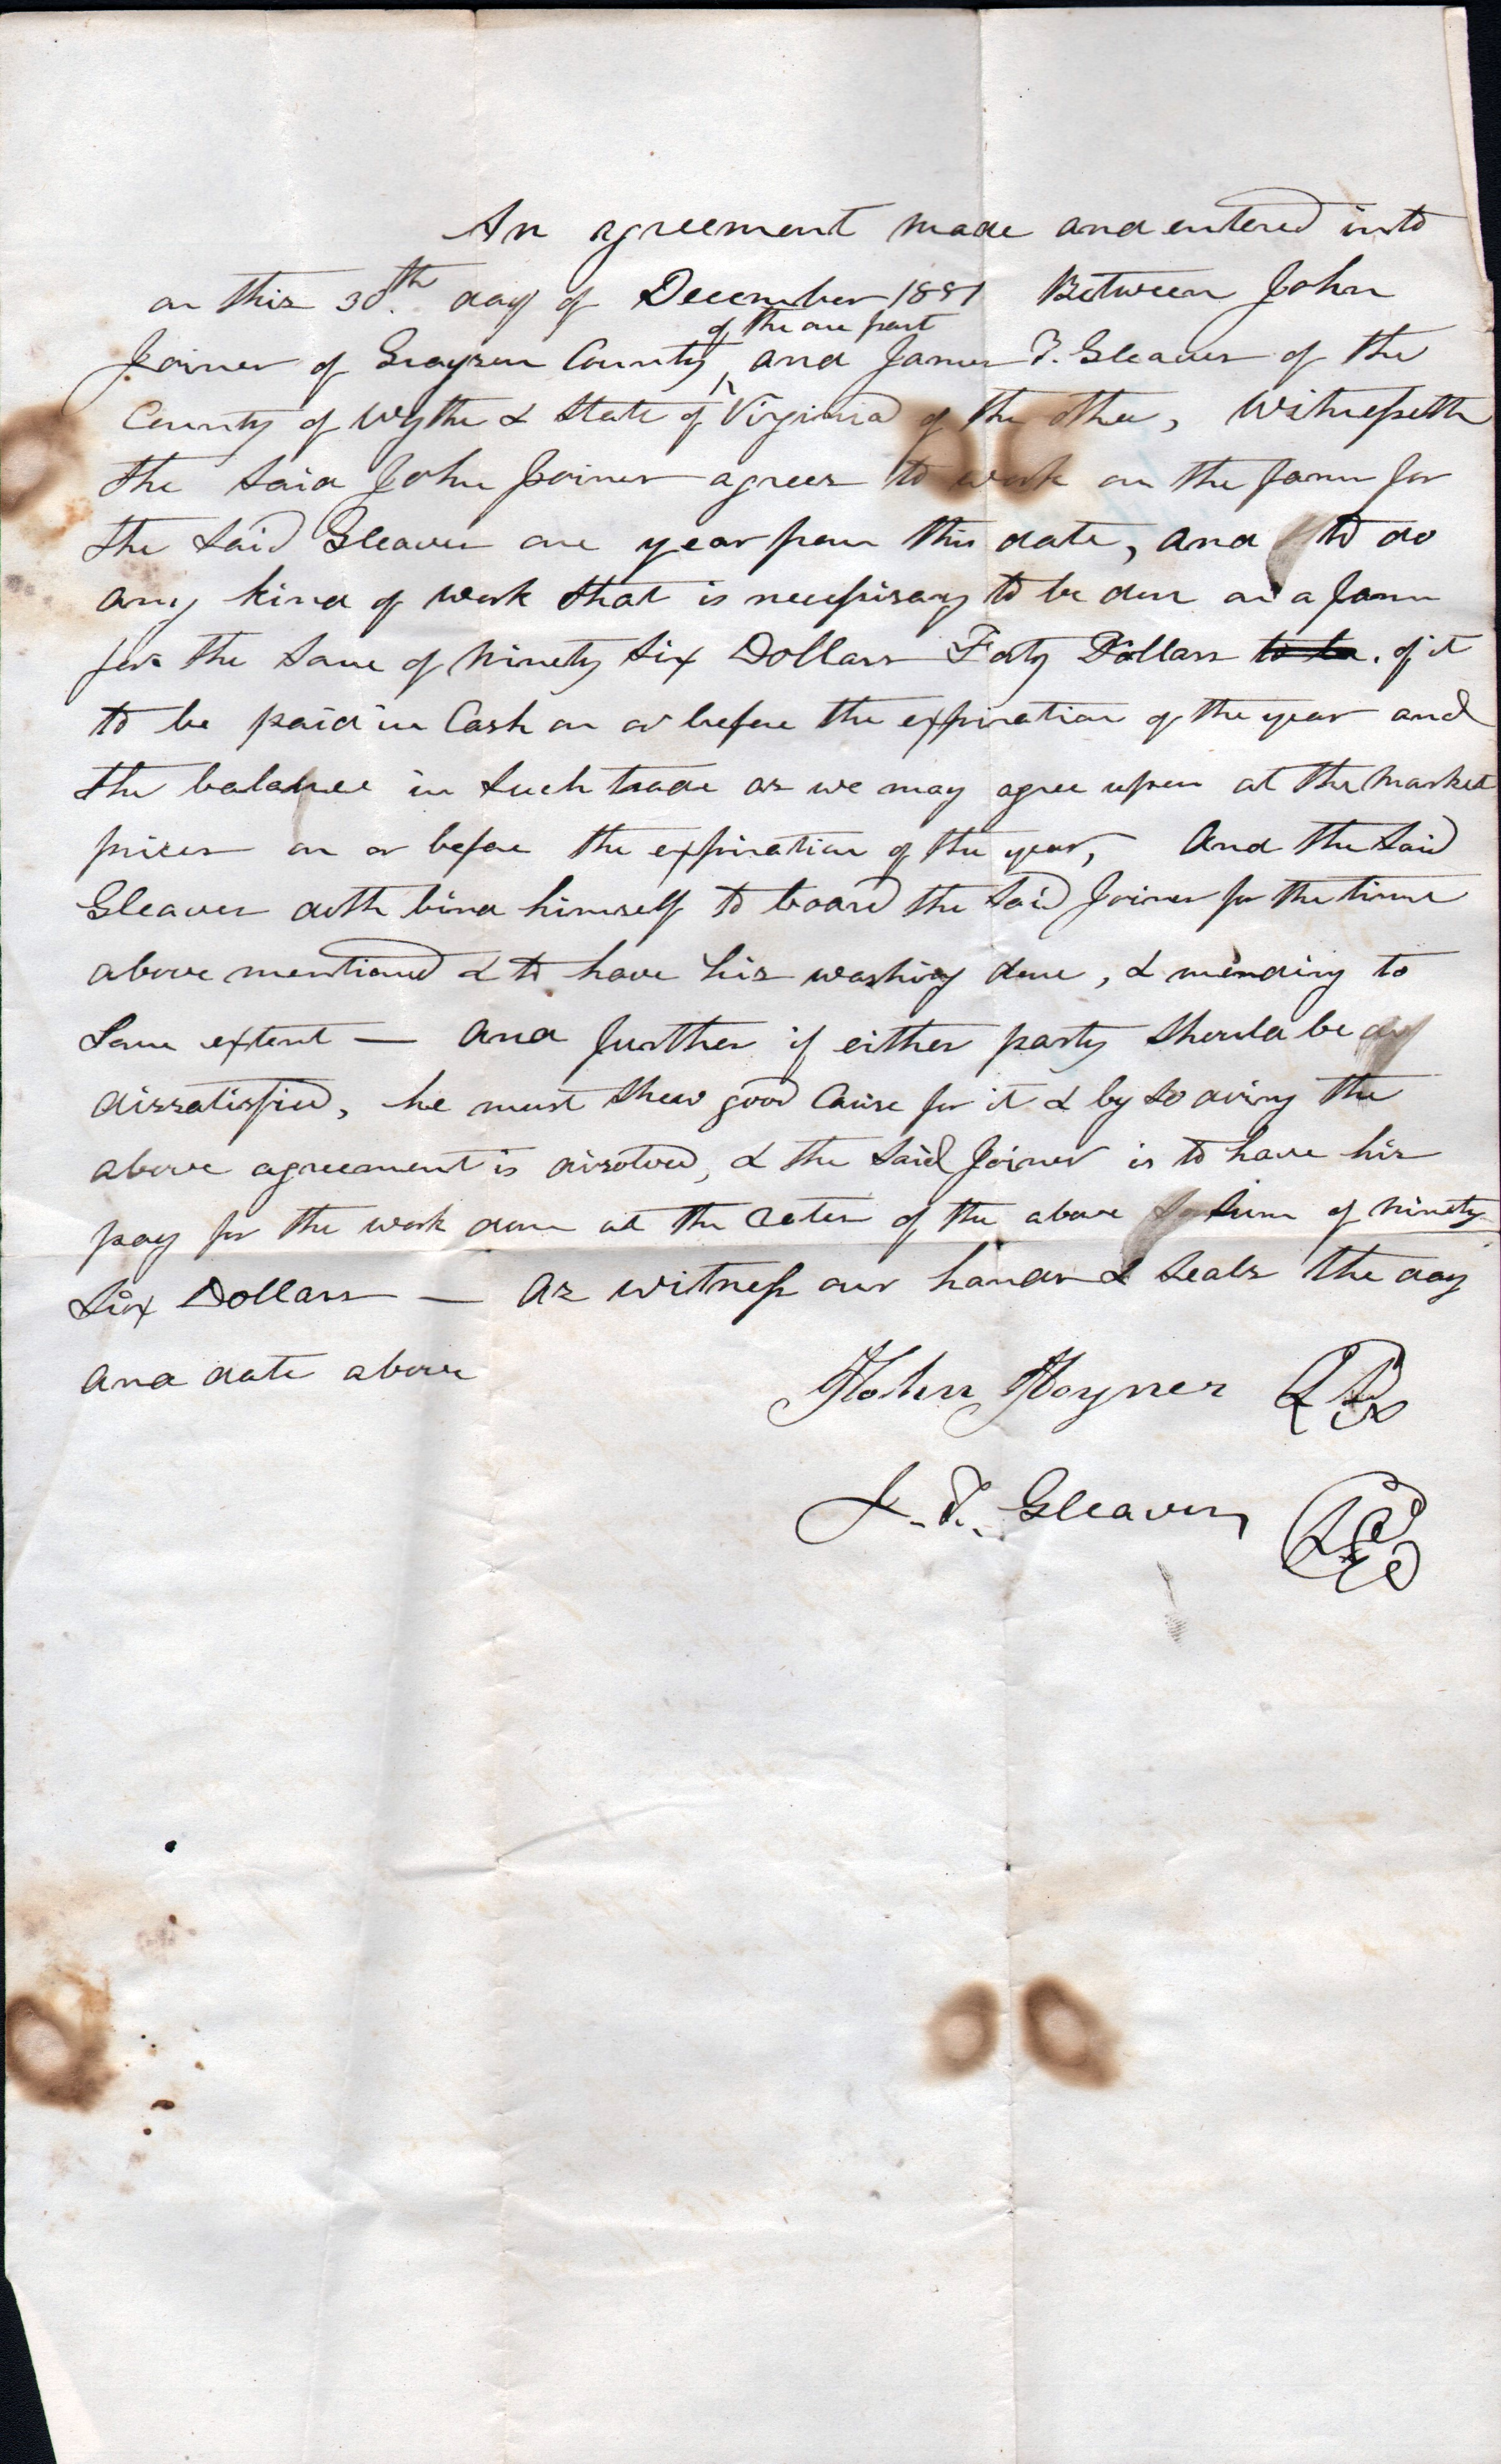 An agreement made and entered into
on this 30th. day of December 1851 Between John
of the one part
Joiner of Grayson County, and James T. Gleaves of the
County of Wythe & State of Virginia of the other, Witnesseth
the said John Joiner agrees to work on the farm for
the said Gleaves one year from this date, and to do
any kind of work that is necessisary to be done on a farm
for the sume of Ninety Six Dollars Forty Dollars to be. of it
to be paid in Cash on or before the expiration of the year and
the balance in such trade as we may agree upon at the market
prices on or before the expiration of the year, And the said
Gleaves doth bind himself to board the said Joiner for the time
above mentioned & to have his washing done, & mending to
some extent — And further if either party should be
dissatisfied, he must shew good Cause for it & by so doing the
above agreement is disolved, & the said Joiner is to have his
pay for the work done at the rates of the above sum of ninety
Six Dollars — As witness our hands & seals the day
and date above
John Joyner
J. T. Gleaves Seal